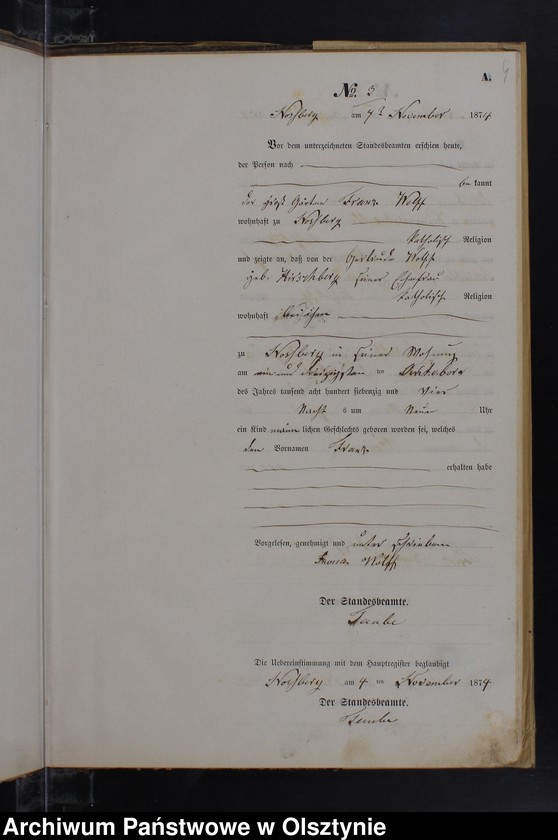 4
A.
No. 3
am 7ten November 1874
Vor dem unterzeichneten Standesbeamten erschien heute,
der Person nach
be kannt
der Franz Wolff
wohnhaft zu
katholisch Religion
und zeigte an, daß von der Gertrude Wolff
geb. Hirschberg seiner Ehefrau
katholische Religion
wohnhaft
zu in seiner Wohnung
am ein und dreizigsten ten October
des Jahres tausend acht hundert siebenzig und vier
Nacht s um Neun Uhr
ein Kind männ lichen Geschlechts geboren worden sei, welches
den Vornamen Franz
erhalten habe
Vorgelesen, genehmigt und unterschrieben
Wolff
Der Standesbeamte.
Taube
Die Uebereinstimmung mit dem Hauptregister beglaubigt
am ten November 1874
Der Standesbeamte.
Taube
Archiwum Państwowe w Olsztynie